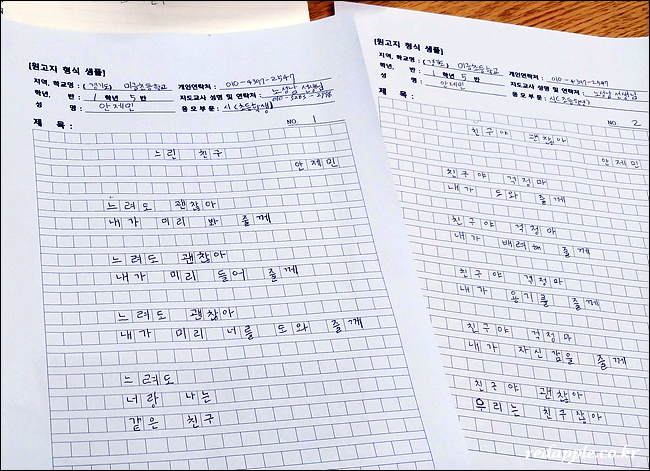 [원고지 형식 샘플]
지역, 학교명 : (경기도) 미금초등학교 개인연락처 : 010-4397-2547
학년, 반 : 1 학년 5 반 지도교사 성명 및 연락처 : 노성남 선생님
010-5285-2978
성 명 : 안제민 응모부문 : 시 (초등학생)
제 목 : NO. 1
느린 친구
안제민
느려도 괜찮아
내가 미리 봐 줄께
느려도 괜찮아
내가 미리 들어 줄께
느려도 괜찮아
내가 미리 너를 도와 줄께
느려도
너랑 나는
같은 친구
[원고지 형식 샘플]
지역, 학교명 : (경기도) 미금초등학교 개인연락처 : 010-4397-2547
학년, 반 : 1 학년 5 반 지도교사 성명 및 연락처 : 노성남 선생님
성 명 : 안제민 응모부문 : 시(초등학생)
제 목 : NO. 2
친구야 괜찮아
안제민
친구야 걱정마
내가 도와 줄께
친구야 걱정마
내가 배려해 줄께
친구야 걱정마
내가 용기를 줄께
친구야 걱정마
내가 자신감을 줄께
친구야 괜찮아
우리는 친구잖아